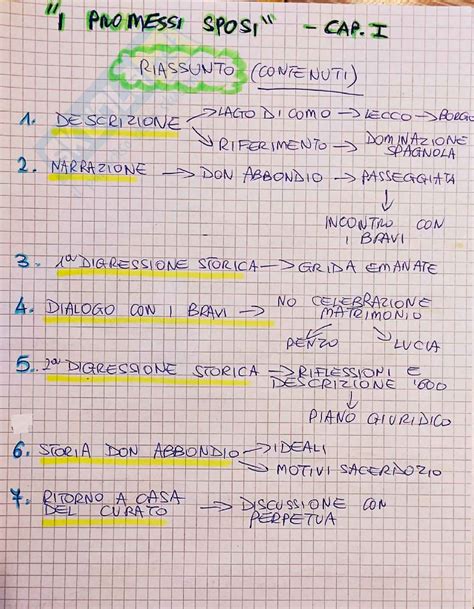 "I PROMESSI SPOSI" - CAP. I
RIASSUNTO (CONTENUTI)
1. DESCRIZIONE → LAGO DI COMO → LECCO → BORGO
↘ RIFERIMENTO → DOMINAZIONE SPAGNOLA
2. NARRAZIONE → DON ABBONDIO → PASSEGGIATA
↓
INCONTRO CON
I BRAVI
3. 1ª DIGRESSIONE STORICA → GRIDA EMANATE
4. DIALOGO CON I BRAVI → NO CELEBRAZIONE
MATRIMONIO
RENZO LUCIA
5. 2ª DIGRESSIONE STORICA → RIFLESSIONI E
DESCRIZIONE '600
↓
PIANO GIURIDICO
6. STORIA DON ABBONDIO → IDEALI
→ MOTIVI SACERDOZIO
7. RITORNO A CASA
DEL CURATO → DISCUSSIONE CON
PERPETUA